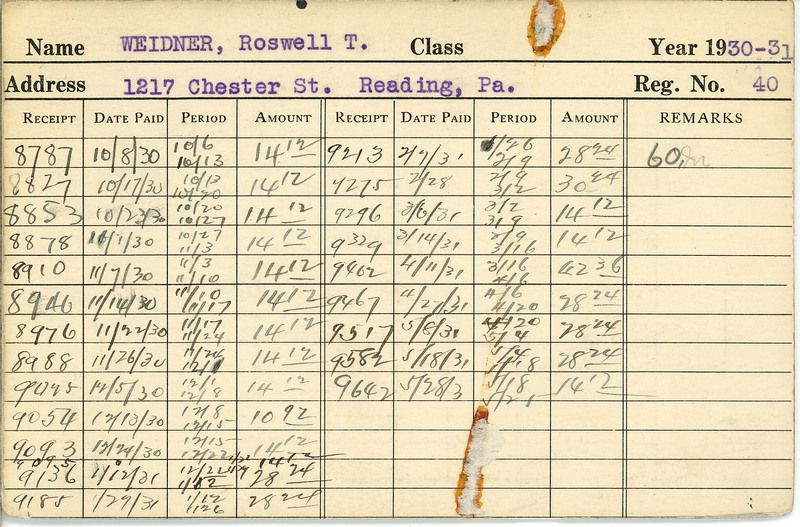 Name WEIDNER, Roswell T. Class Year 1930-31
Address 1217 Chester St. Reading, Pa. Reg. No. 40
RECEIPT DATE PAID PERIOD AMOUNT RECEIPT DATE PAID PERIOD AMOUNT REMARKS
8787 10/8/30 10/6 10/13 14 12 9213 2/7/31 1/26 2/9 28 24 60.
8827 10/17/30 10/13 10/20 14 12 9275 2/28 2/9 3/2 30 24
8853 10/23/30 10/20 10/27 14 12 9296 3/6/31 3/2 3/9 14 12
8878 11/1/30 10/27 11/3 14 12 9329 3/14/31 3/9 3/16 14 12
8910 11/7/30 11/3 11/10 14 12 9462 4/11/31 3/16 4/6 42 36
8946 11/14/30 11/10 11/17 14 12 9467 4/27/31 4/6 4/20 28 24
8976 11/22/30 11/17 11/24 14 12 9517 5/8/31 4/20 5/4 28 24
8988 11/26/30 11/24 12/1 14 12 9582 5/18/31 5/4 5/18 28 24
9025 12/5/30 12/1 12/8 14 12 9642 5/28/3 5/18 5/25 14 12
9054 12/13/30 12/8 12/15 10 92
9093 12/20/30 12/15 12/22 14 12
9136 1/12/31 1/12 28 24
9185 1/29/31 1/12 1/26 28 24